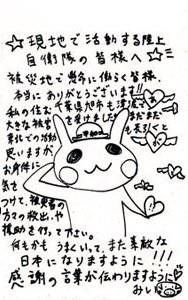 ☆現地で活動する陸上
自衛隊の皆様へ☆
被災地で懸命に働く皆様、
本当にありがとうございます!!
私の住む千葉県旭市も津波で
大きな被害を受けました。まだまだ
東北での活動も長引くと
思いますが、
お身体に
気を
つけて、被災者の
方々の救出、や
援助を行って下さい。
何もかもうまくいって、また素敵な
日本になりますように!!!
感謝の言葉が伝わりますように♡